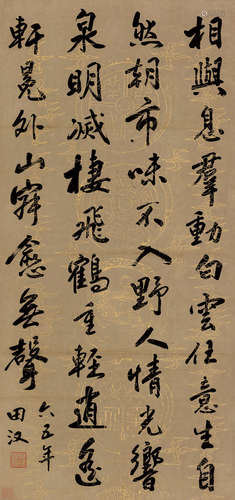 相與息羣動白雲任意生自
然朝市味不入野人情光響
泉明滅棲飛鶴重輕逍遙
軒冕外山寂愈無聲
六五年
田汉